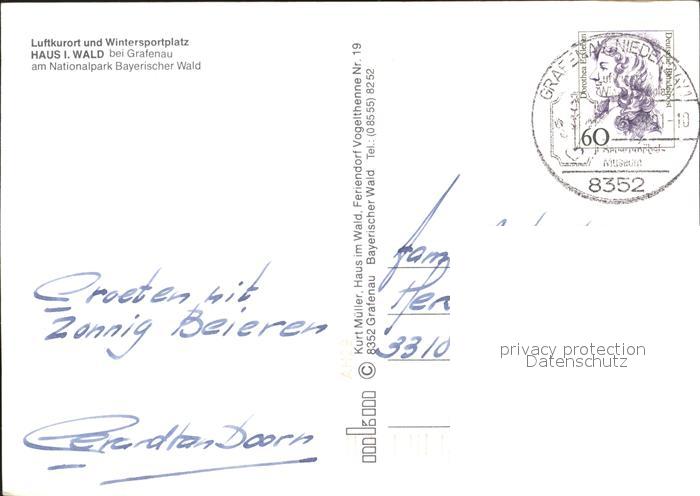 Luftkurort und Wintersportplatz
HAUS I. WALD bei Grafenau
am Nationalpark Bayerischer Wald
Groeten uit
Zonnig Beieren
Kurt Müller, Haus im Wald, Feriendorf Vogelthenne Nr. 19
8352 Grafenau Bayerischer Wald Tel.: (08555) 8252
©
Dorothea Erxleben
Deutsche Bundespost
60
GRAFENAU, NIEDERBAY 1
Museum
8352
Fam
3310
privacy protection
Datenschutz